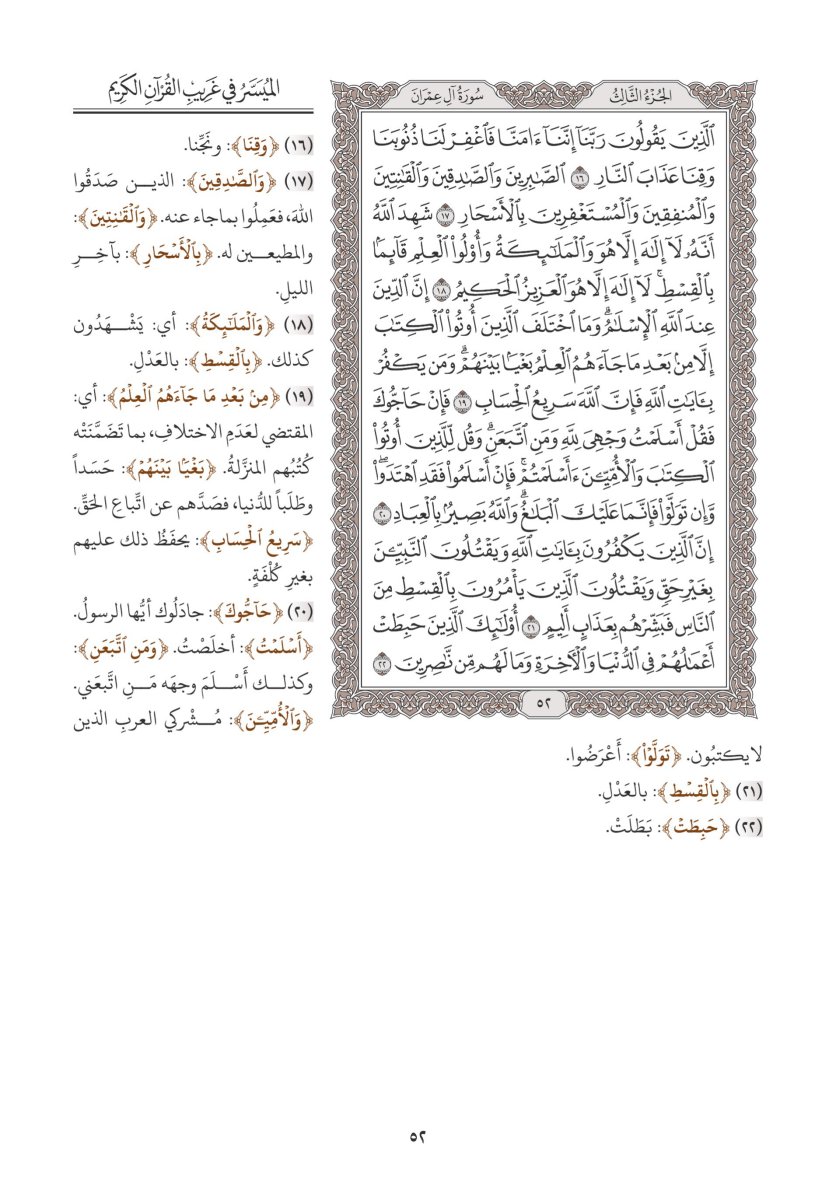 الميُسَّرُ في غَرِيبِ القُرْآنِ الكَرِيمِ
الجُزْءُ الثَّالِثُ
سُورَةُ آلِ عِمْرَانَ
ٱلَّذِينَ يَقُولُونَ رَبَّنَآ إِنَّنَآ ءَامَنَّا فَٱغۡفِرۡ لَنَا ذُنُوبَنَا
وَقِنَا عَذَابَ ٱلنَّارِ ١٦ ٱلصَّٰبِرِينَ وَٱلصَّٰدِقِينَ وَٱلۡقَٰنِتِينَ
وَٱلۡمُنفِقِينَ وَٱلۡمُسۡتَغۡفِرِينَ بِٱلۡأَسۡحَارِ ١٧ شَهِدَ ٱللَّهُ
أَنَّهُۥ لَآ إِلَٰهَ إِلَّا هُوَ وَٱلۡمَلَٰٓئِكَةُ وَأُوْلُواْ ٱلۡعِلۡمِ قَآئِمَۢا
بِٱلۡقِسۡطِۚ لَآ إِلَٰهَ إِلَّا هُوَ ٱلۡعَزِيزُ ٱلۡحَكِيمُ ١٨ إِنَّ ٱلدِّينَ
عِندَ ٱللَّهِ ٱلۡإِسۡلَٰمُۗ وَمَا ٱخۡتَلَفَ ٱلَّذِينَ أُوتُواْ ٱلۡكِتَٰبَ
إِلَّا مِنۢ بَعۡدِ مَا جَآءَهُمُ ٱلۡعِلۡمُ بَغۡيَۢا بَيۡنَهُمۡۗ وَمَن يَكۡفُرۡ
بِـَٔايَٰتِ ٱللَّهِ فَإِنَّ ٱللَّهَ سَرِيعُ ٱلۡحِسَابِ ١٩ فَإِنۡ حَآجُّوكَ
فَقُلۡ أَسۡلَمۡتُ وَجۡهِيَ لِلَّهِ وَمَنِ ٱتَّبَعَنِۗ وَقُل لِّلَّذِينَ أُوتُواْ
ٱلۡكِتَٰبَ وَٱلۡأُمِّيِّـۧنَ ءَأَسۡلَمۡتُمۡۚ فَإِنۡ أَسۡلَمُواْ فَقَدِ ٱهۡتَدَواْۖ
وَّإِن تَوَلَّوۡاْ فَإِنَّمَا عَلَيۡكَ ٱلۡبَلَٰغُۗ وَٱللَّهُ بَصِيرُۢ بِٱلۡعِبَادِ ٢٠
إِنَّ ٱلَّذِينَ يَكۡفُرُونَ بِـَٔايَٰتِ ٱللَّهِ وَيَقۡتُلُونَ ٱلنَّبِيِّـۧنَ
بِغَيۡرِ حَقّٖ وَيَقۡتُلُونَ ٱلَّذِينَ يَأۡمُرُونَ بِٱلۡقِسۡطِ مِنَ
ٱلنَّاسِ فَبَشِّرۡهُم بِعَذَابٍ أَلِيمٍ ٢١ أُوْلَٰٓئِكَ ٱلَّذِينَ حَبِطَتۡ
أَعۡمَٰلُهُمۡ فِي ٱلدُّنۡيَا وَٱلۡأٓخِرَةِ وَمَا لَهُم مِّن نَّٰصِرِينَ ٢٢
٥٢
(١٦) ﴿وَقِنَا﴾: ونَجِّنا.
(١٧) ﴿وَٱلصَّٰدِقِينَ﴾: الذيــن صَدَقُوا
اللهَ، فعَمِلُوا بما جاء عنه. ﴿وَٱلۡقَٰنِتِينَ﴾:
والمطيعــين له. ﴿بِٱلۡأَسۡحَارِ﴾: بآخِــرِ
الليلِ.
(١٨) ﴿وَٱلۡمَلَٰٓئِكَةُ﴾: أي: يَشْــهَدُون
كذلك. ﴿بِٱلۡقِسۡطِ﴾: بالعَدْلِ.
(١٩) ﴿مِنۢ بَعۡدِ مَا جَآءَهُمُ ٱلۡعِلۡمُ﴾: أي:
المقتضي لعَدَمِ الاختلافِ، بما تَضَمَّنَتْه
كُتُبُهم المنزَّلةُ. ﴿بَغۡيَۢا بَيۡنَهُمۡ﴾: حَسَداً
وطَلَباً للدُّنيا، فصَدَّهم عن اتِّباعِ الحَقِّ.
﴿سَرِيعُ ٱلۡحِسَابِ﴾: يحفَظُ ذلك عليهم
بغيرِ كُلْفَةٍ.
(٢٠) ﴿حَآجُّوكَ﴾: جادَلُوك أيُّها الرسولُ.
﴿أَسۡلَمۡتُ﴾: أخلَصْتُ. ﴿وَمَنِ ٱتَّبَعَنِ﴾:
وكذلــك أَسْــلَمَ وجهَه مَــنِ اتَّبَعَني.
﴿وَٱلۡأُمِّيِّـۧنَ﴾: مُــشْركي العربِ الذين
لا يكتبُون. ﴿تَوَلَّوۡاْ﴾: أَعْرَضُوا.
(٢١) ﴿بِٱلۡقِسۡطِ﴾: بالعَدْلِ.
(٢٢) ﴿حَبِطَتۡ﴾: بَطَلَتْ.
٥٢